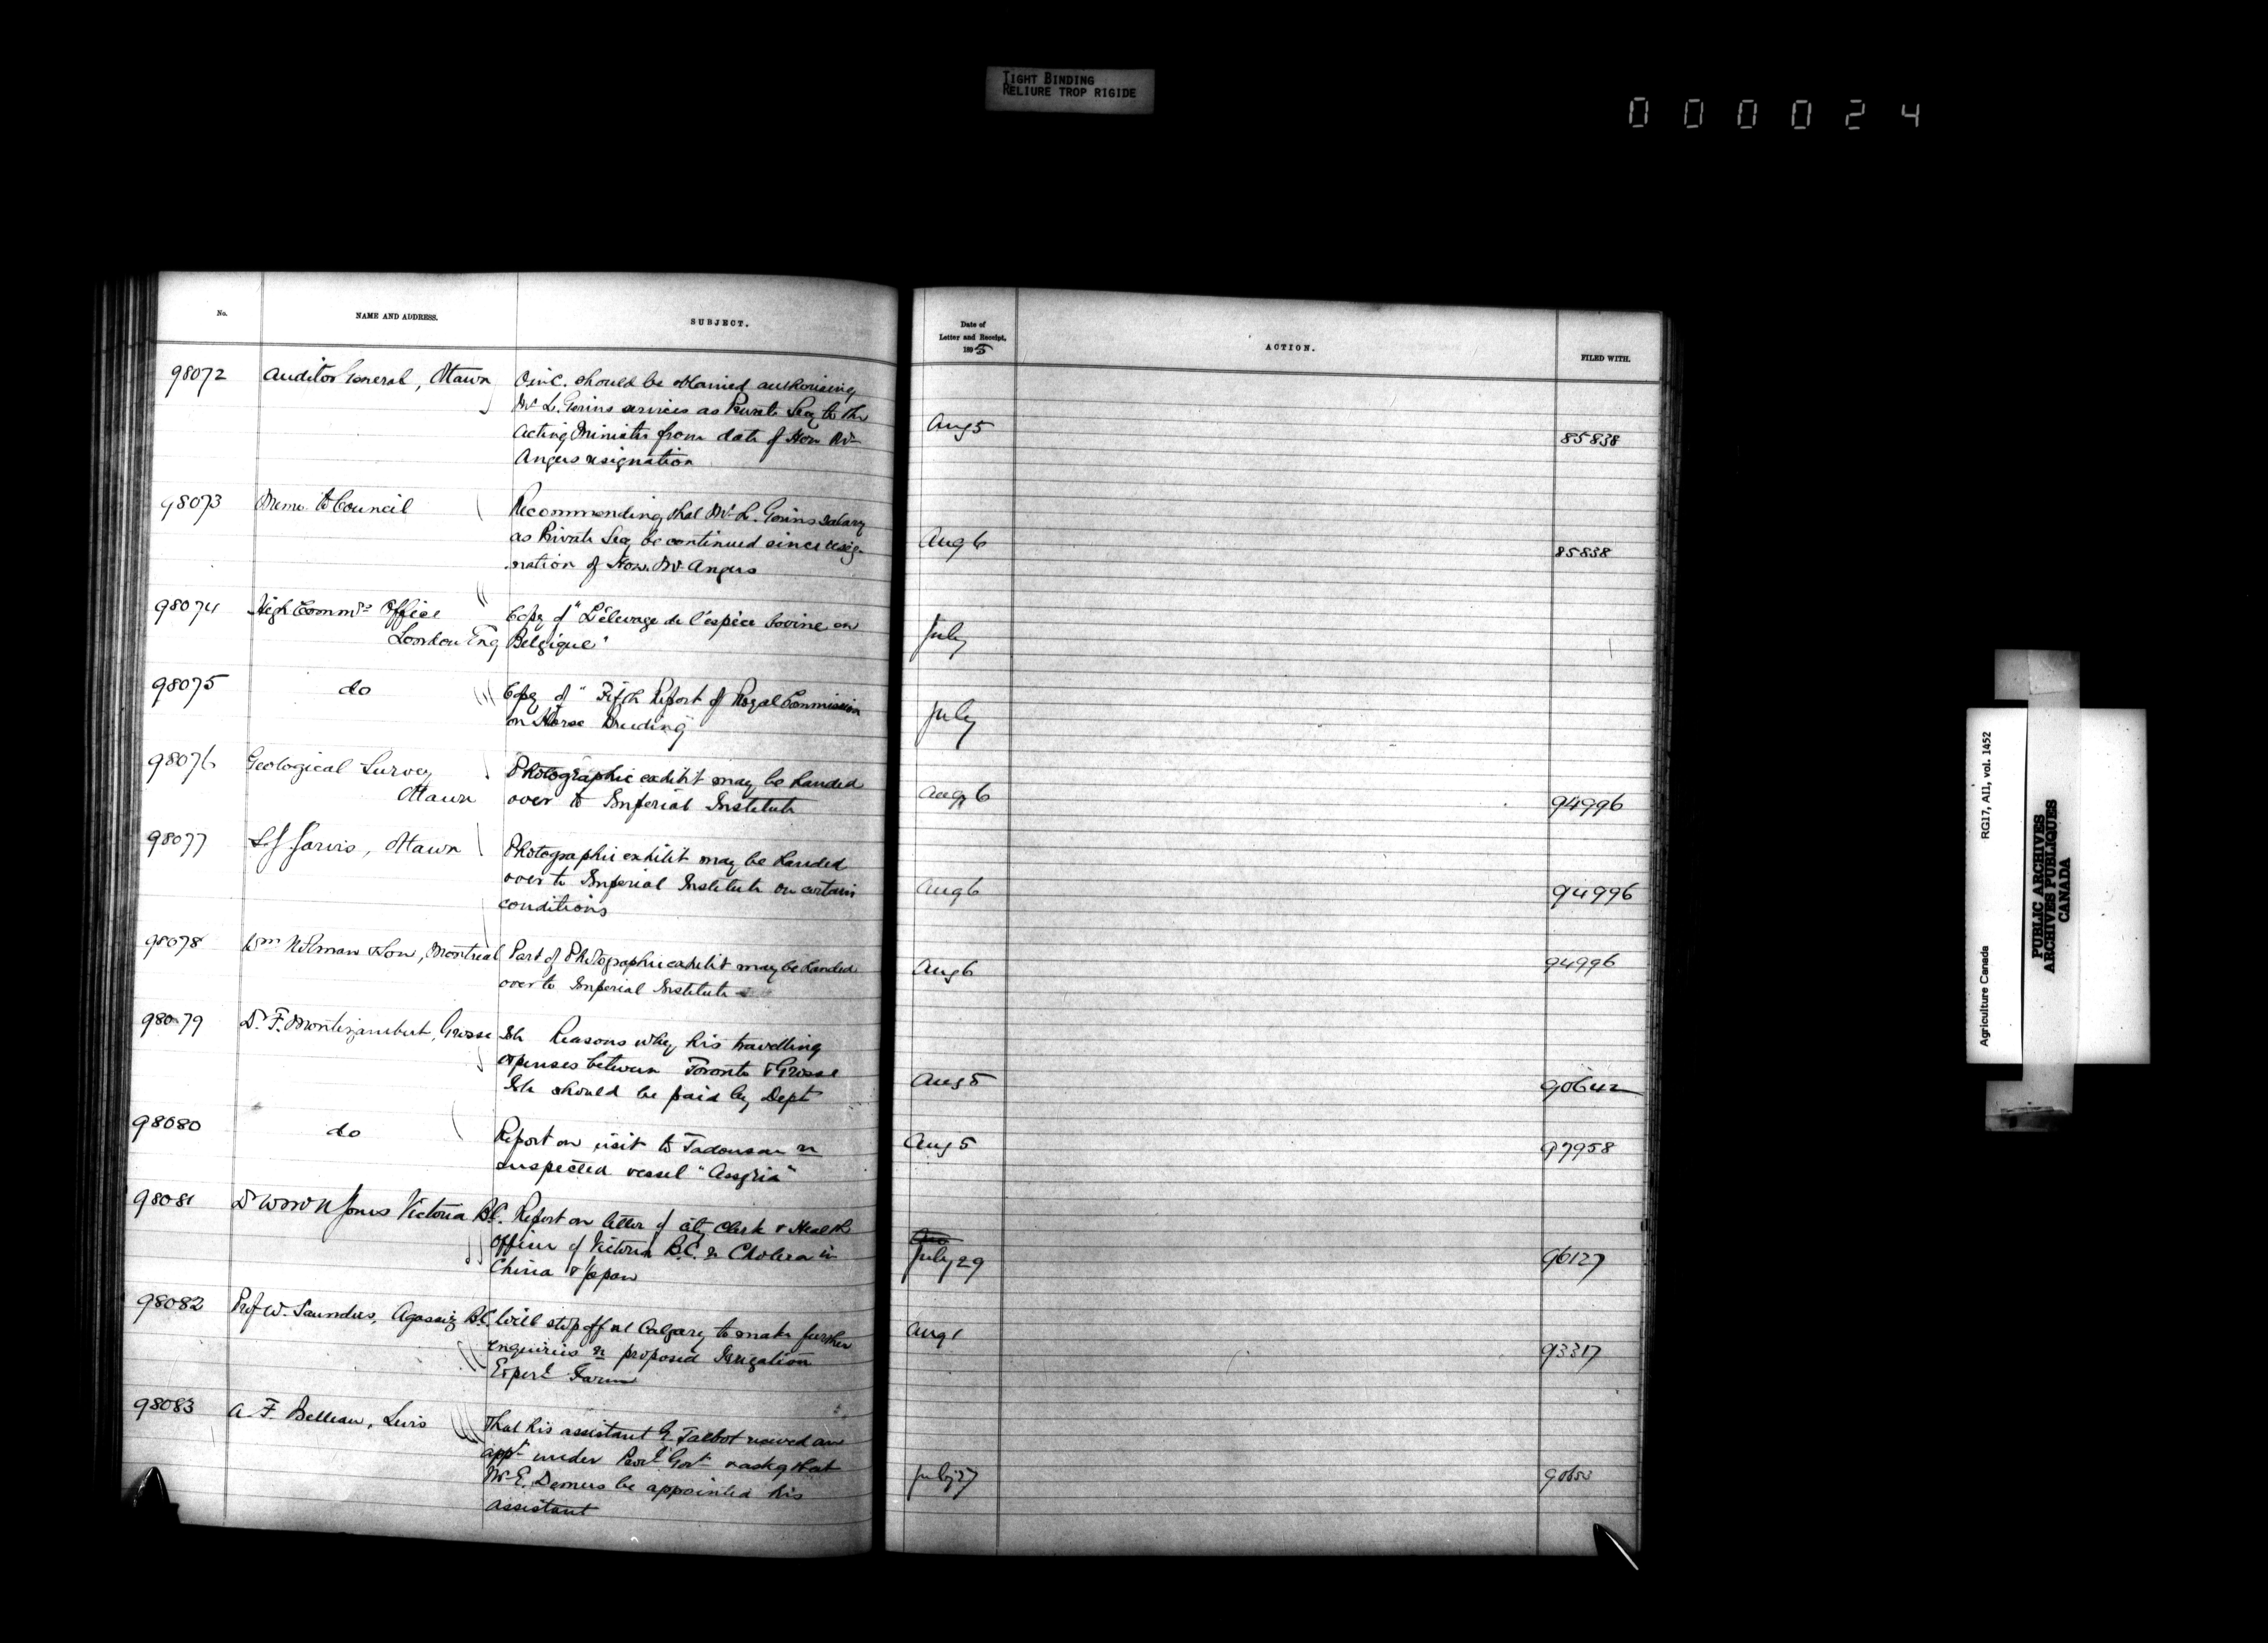 TIGHT BINDING
RELIURE TROP RIGIDE
000024
No.
NAME AND ADDRESS.
SUBJECT.
Date of
Letter and Receipt,
1895
ACTION.
FILED WITH.
98072 Auditor General, Ottawa
OinC. should be obtained authorising
Mr L. Gerins services as Private Secy to the
Acting Minister from date of Hon Mr
Angers resignation
Aug 5
85838
98073 Memo to Council
Recommending that Mr L. Gerins salary
as Private Secy be continued since resig-
nation of Hon. Mr Angers
Aug 6
85838
98074 High Commrs Office
London Eng
Copy of "L'élevage de l'espèce bovine en
Belgique"
July
98075 do
Copy of "Fifth Report of Royal Commission
on Horse Breeding"
July
98076 Geological Survey
Ottawa
Photographic exhibit may be handed
over to Imperial Institute
Aug 6
94996
98077 S J Jarvis, Ottawa
Photographic exhibit may be handed
over to Imperial Institute on certain
conditions
Aug 6
94996
98078 Wm Notman & Son, Montreal
Part of Photographic exhibit may be handed
over to Imperial Institute
Aug 6
94996
98079 Dr. F. Montizambert, Grosse Isle
Reasons why his travelling
expenses between Toronto & Grosse
Isle should be paid by Dept
Aug 5
90642
98080 do
Report on visit to Tadousac re
suspected vessel "Assyria"
Aug 5
97958
98081 Dr W Jones Victoria B.C.
Report on letter of city Clerk & Health
Officer of Victoria B.C. re Cholera in
China & Japan
July 29
96127
98082 Prof W. Saunders, Agassiz B.C.
Will stop off at Calgary to make further
enquiries re proposed Irrigation
Experl Farm
Aug 1
93317
98083 A. F. Belleau, Levis
That his assistant G Talbot recived an
appt under Provl Govt & askg that
Mr E. Demers be appointed his
assistant
July 27
Agriculture Canada
RG17, AII, vol. 1452
PUBLIC ARCHIVES
ARCHIVES PUBLIQUES
CANADA